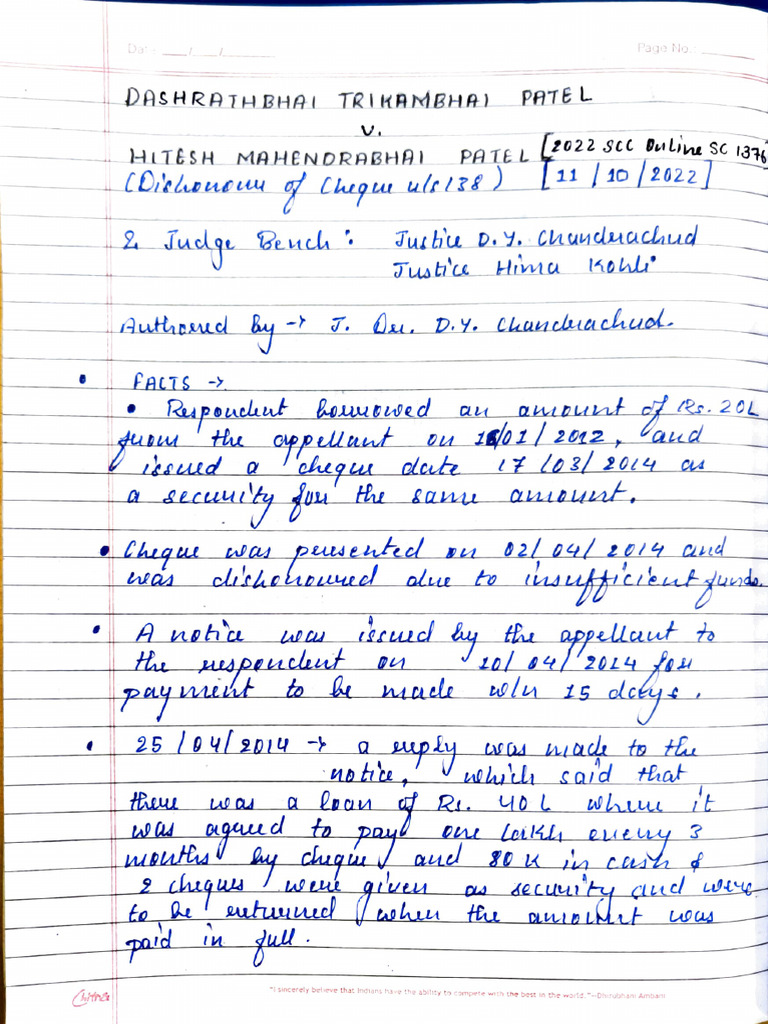 Date ___/___/______ Page No.: ______
DASHRATHBHAI TRIKAMBHAI PATEL
v.
HITESH MAHENDRABHAI PATEL [2022 SCC Online SC 1376]
(Dishonour of Cheque u/s 138) [11/10/2022]
2 Judge Bench: Justice D.Y. Chandrachud
Justice Hima Kohli
Authored by → J. Dr. D.Y. Chandrachud.
• FACTS →
• Respondent borrowed an amount of Rs. 20L
from the appellant on 16/01/2012, and
issued a cheque date 17/03/2014 as
a security for the same amount.
• Cheque was presented on 02/04/2014 and
was dishonoured due to insufficient funds.
• A notice was issued by the appellant to
the respondent on 10/04/2014 for
payment to be made w/n 15 days.
• 25/04/2014 → a reply was made to the
notice, which said that
there was a loan of Rs. 40L where it
was agreed to pay one lakh every 3
months by cheque and 80K in cash &
2 cheques were given as security and were
to be returned when the amount was
paid in full.
"I sincerely believe that Indians have the ability to compete with the best in the world."—Dhirubhai Ambani